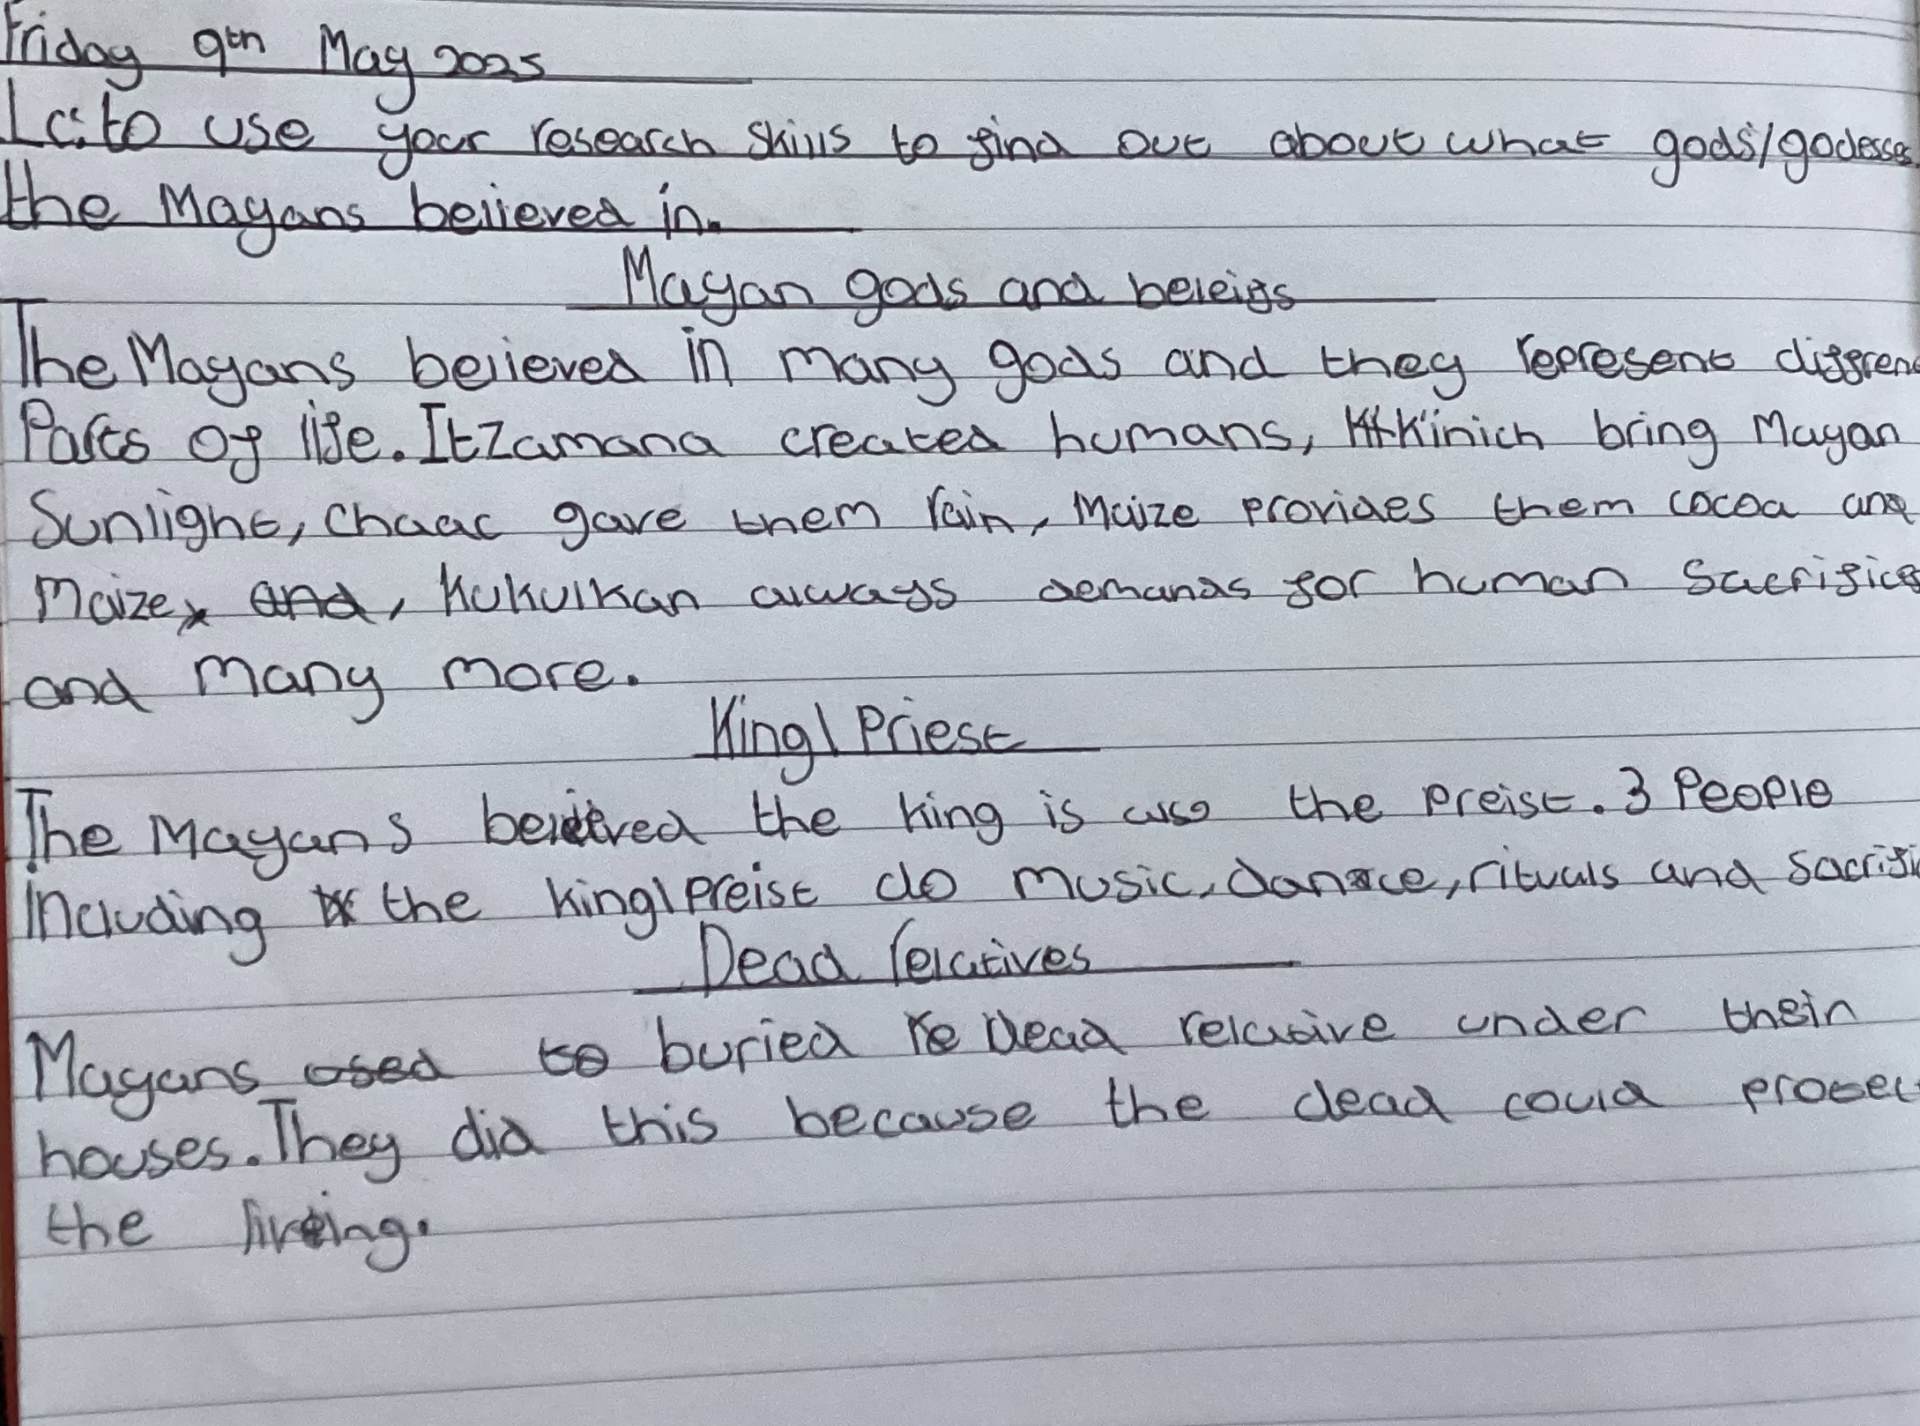 Friday 9th May 2025
Lc: to use your research skills to find out about what gods/godesses
the Mayans believed in.
Mayan gods and beleifs
The Mayans believed in many gods and they represent diffren
Parts of life. Itzamana created humans, K'inich bring Mayan
Sunlight, Chaac gave them rain, Maize provides them cocoa and
Maize, Kukulkan always demands for human Sacrifice
and many more.
King/Priest
The Mayans beleived the king is also the preist. 3 People
Including the king/preist do music, dance, rituals and Sacrifi
Dead relatives
Mayans buried dead relative under their
houses. They did this because the dead could protec
the living.